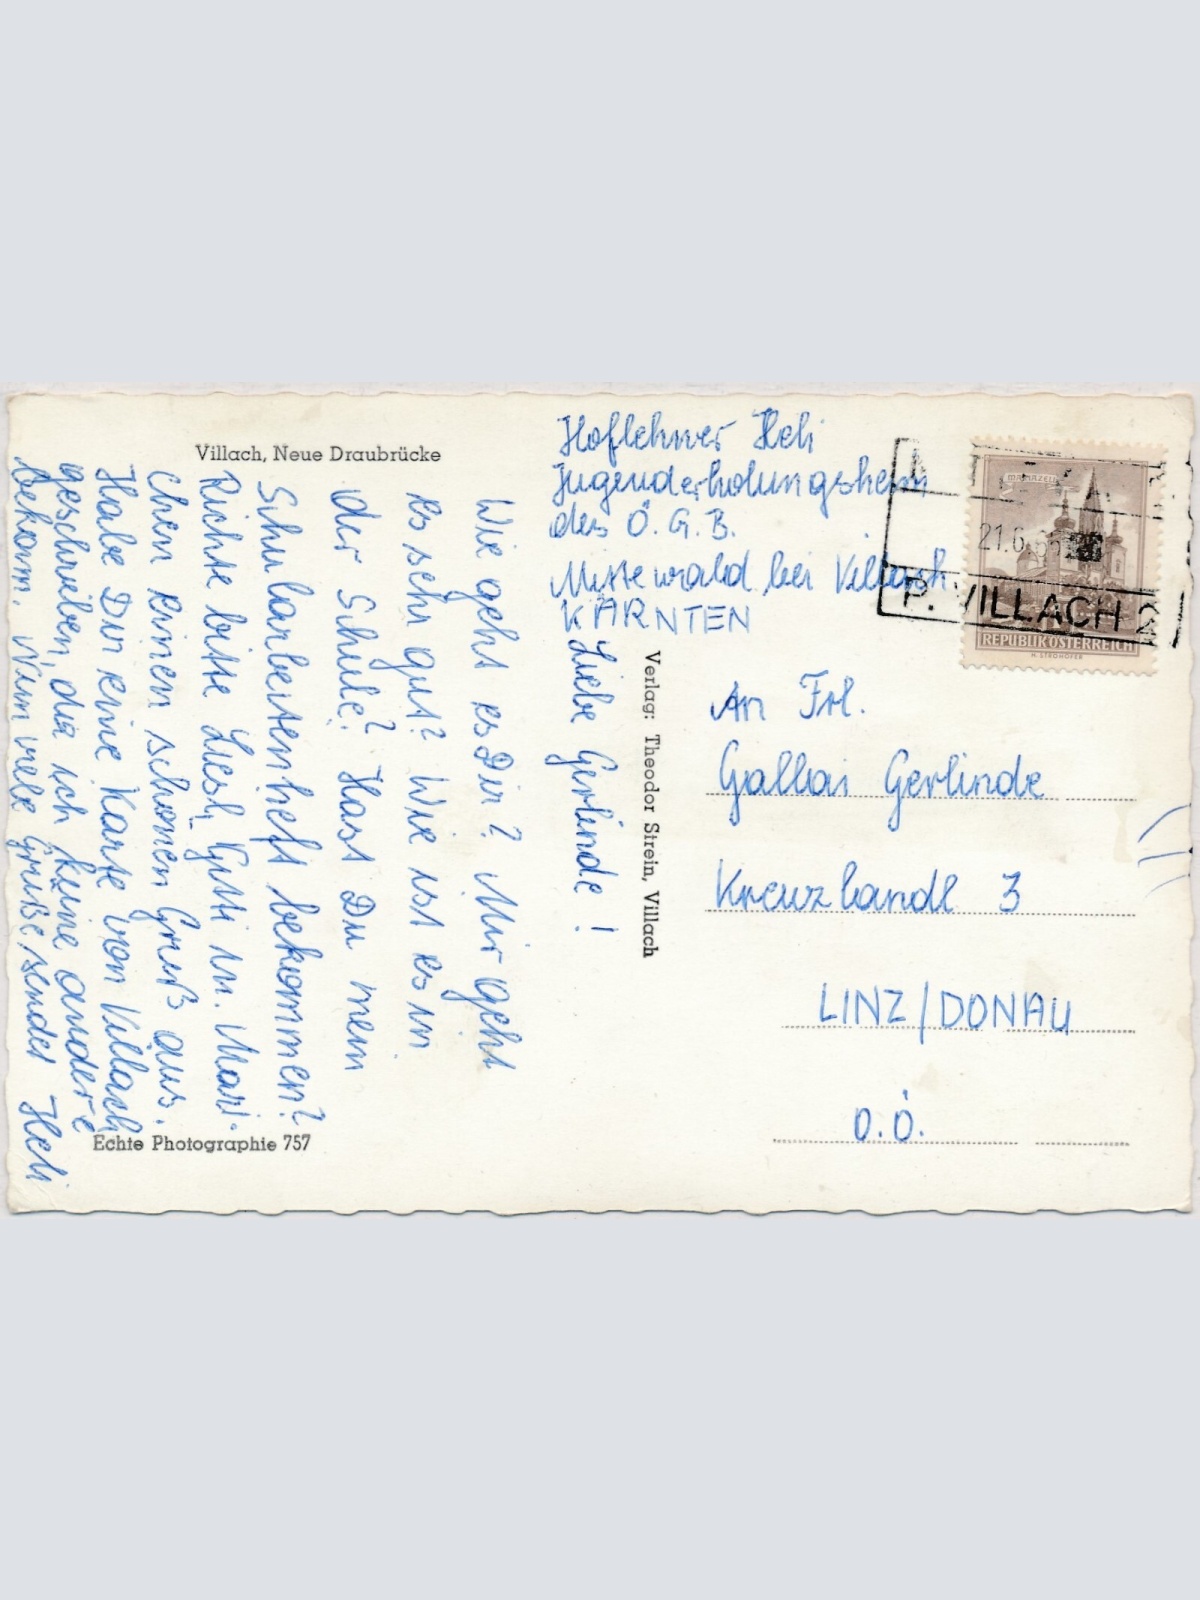 Villach, Neue Draubrücke
Hoflehner Heli
Jugenderholungsheim
des Ö.G.B.
Mittewald bei Villach
KÄRNTEN
Liebe Gerlinde!
Wie geht es Dir? Mir geht
es sehr gut? Wie ist es in
der Schule? Hast Du mein
Schularbeitenheft bekommen?
Richte bitte Liesl, Gitti u. Mari-
chen einen schönen Gruß aus.
Habe Dir eine Karte von Villach
geschrieben, da ich keine andere
bekam. Nun viele Grüße sendet Heli
Echte Photographie 757
Verlag: Theodor Strein, Villach
MARIAZELL
21.6.
P. VILLACH 2
REPUBLIK ÖSTERREICH
H. STROHOFER
An Frl.
Gallai Gerlinde
Kreuzlandl 3
LINZ/DONAU
O.Ö.